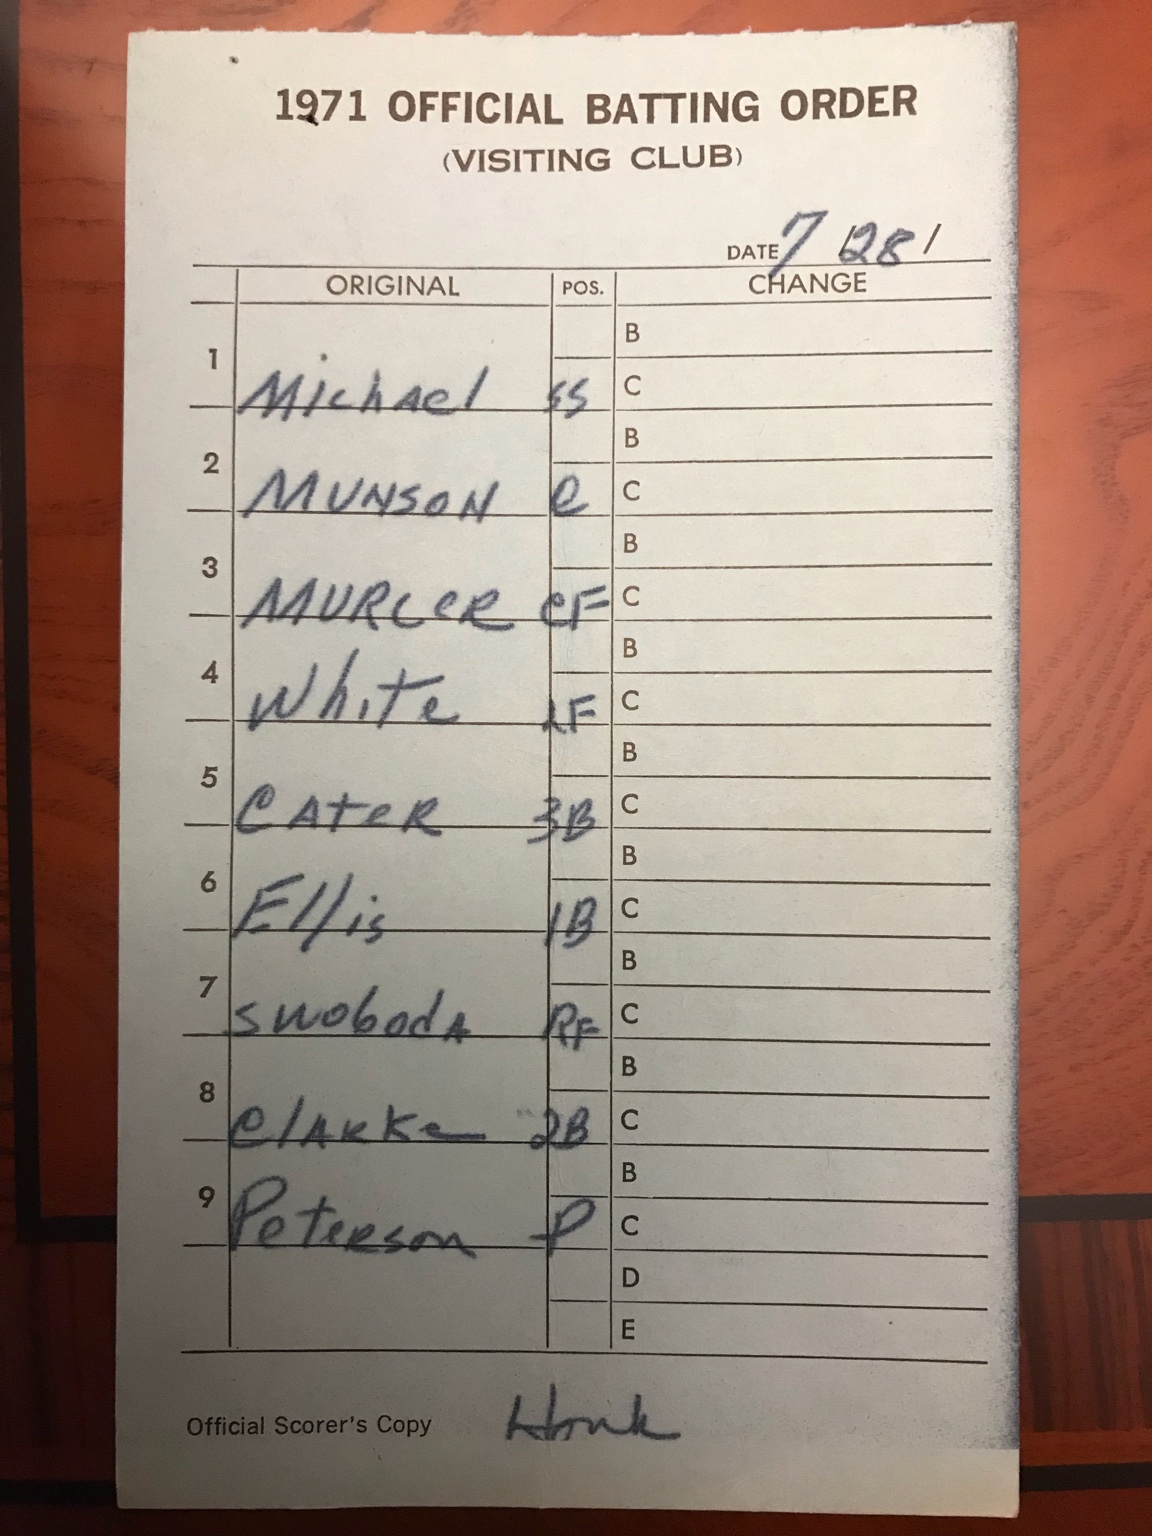 1971 OFFICIAL BATTING ORDER
(VISITING CLUB)
DATE 7/28/
ORIGINAL POS. CHANGE
1 Michael SS B
C
2 MUNSON C B
C
3 MURCER CF B
C
4 White LF B
C
5 CATER 3B B
C
6 Ellis 1B B
C
7 SwobodA RF B
C
8 ClARKe 2B B
C
9 Peterson P B
C
D
E
Official Scorer's Copy Houk